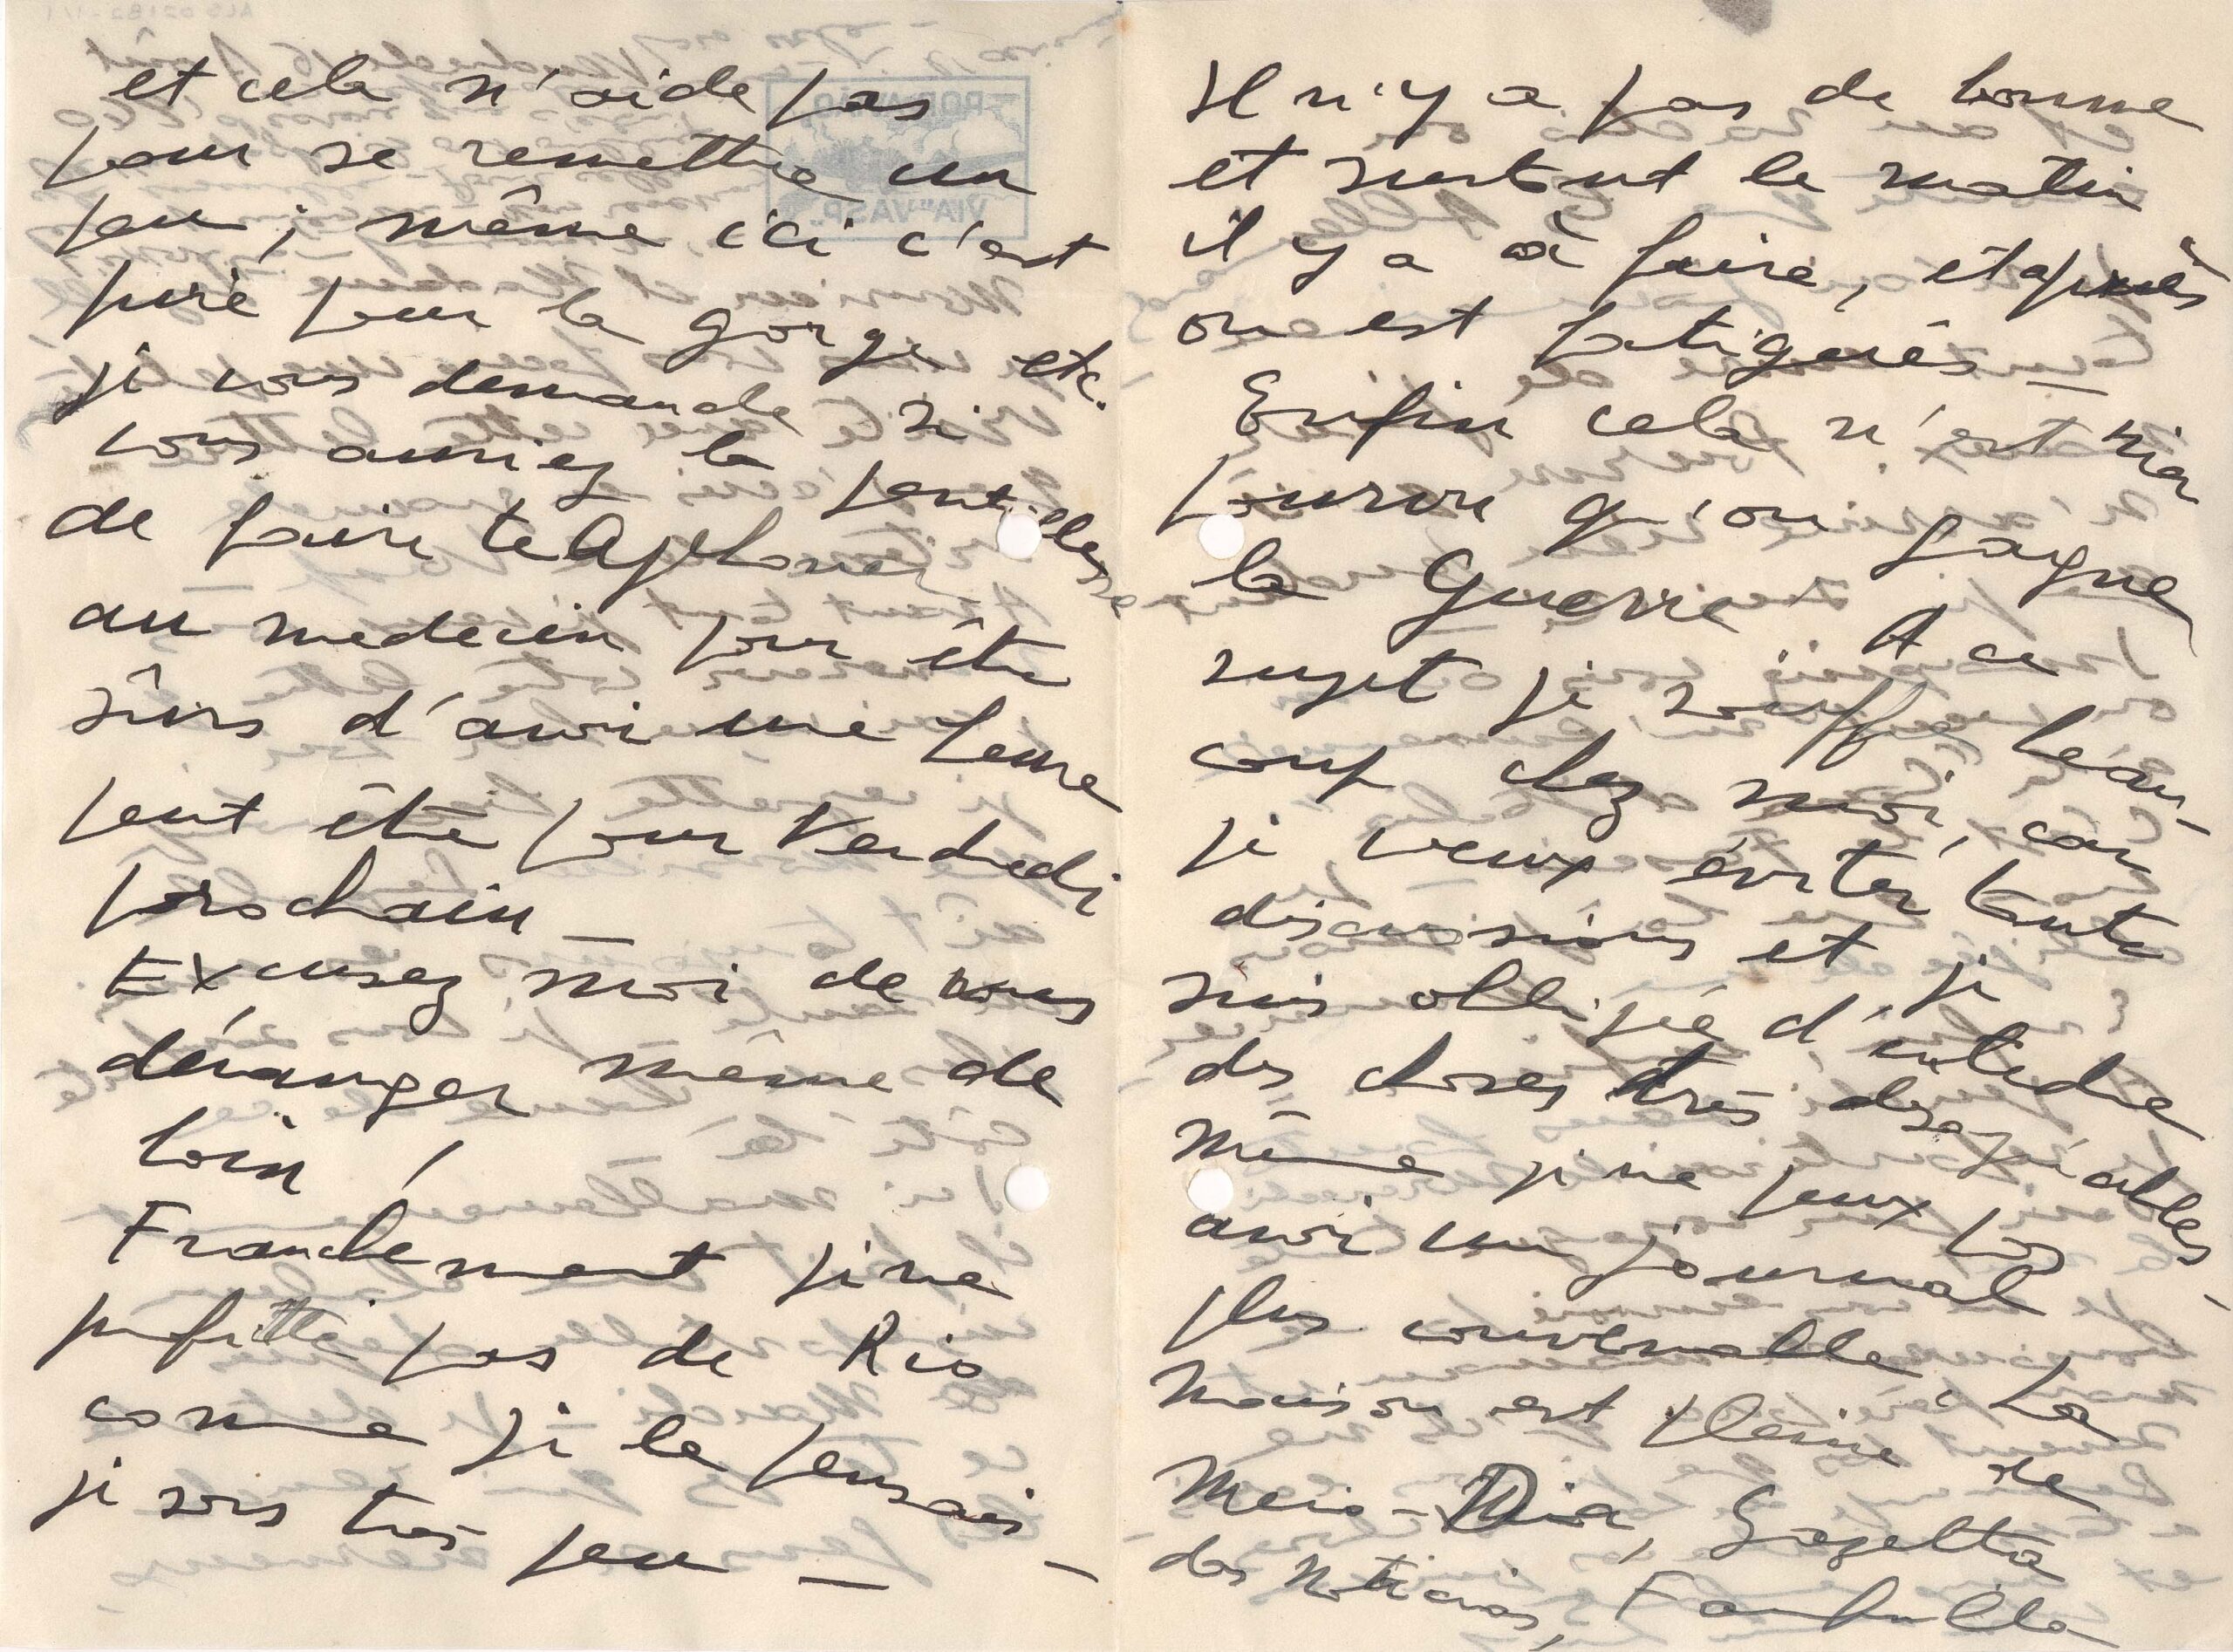 et cela n'aide pas
pour se remettre un
peu ; même ici c'est
pire pour la gorge etc.
je vous demande si
vous auriez la gentillesse
de faire telephoner
au medecin pour être
sûrs d'avoir une heure
peut être pour Vendredi
prochain _
Excusez moi de vous
déranger même de
loin !
Franchement je ne
profitte pas de Rio
comme je le pensais _
je sors très peu _
Il n'y a pas de bonne
et surtout le matin
il y a à faire, et après
on est fatiguées _
Enfin cela n'est rien
pourvu qu'on gagne
la Guerre. A ce
sujet je souffre beau-
coup chez moi, car
je veux éviter toute
discussions et je
suis obligée d'entendre
des choses très desagréables -
Même je ne peux pas
avoir un journal
plus convenable. La
maison est pleine de
Meio-Dia, Gazetta
das Noticias, Fanfulla